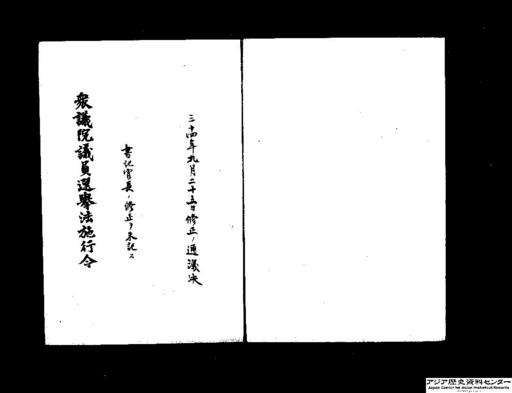 三十四年九月二十五日修正ノ通議決
書記官長ノ修正ヲ朱記ス
衆議院議員選擧法施行令
アジア歴史資料センター
Japan Center for Asian Historical Records